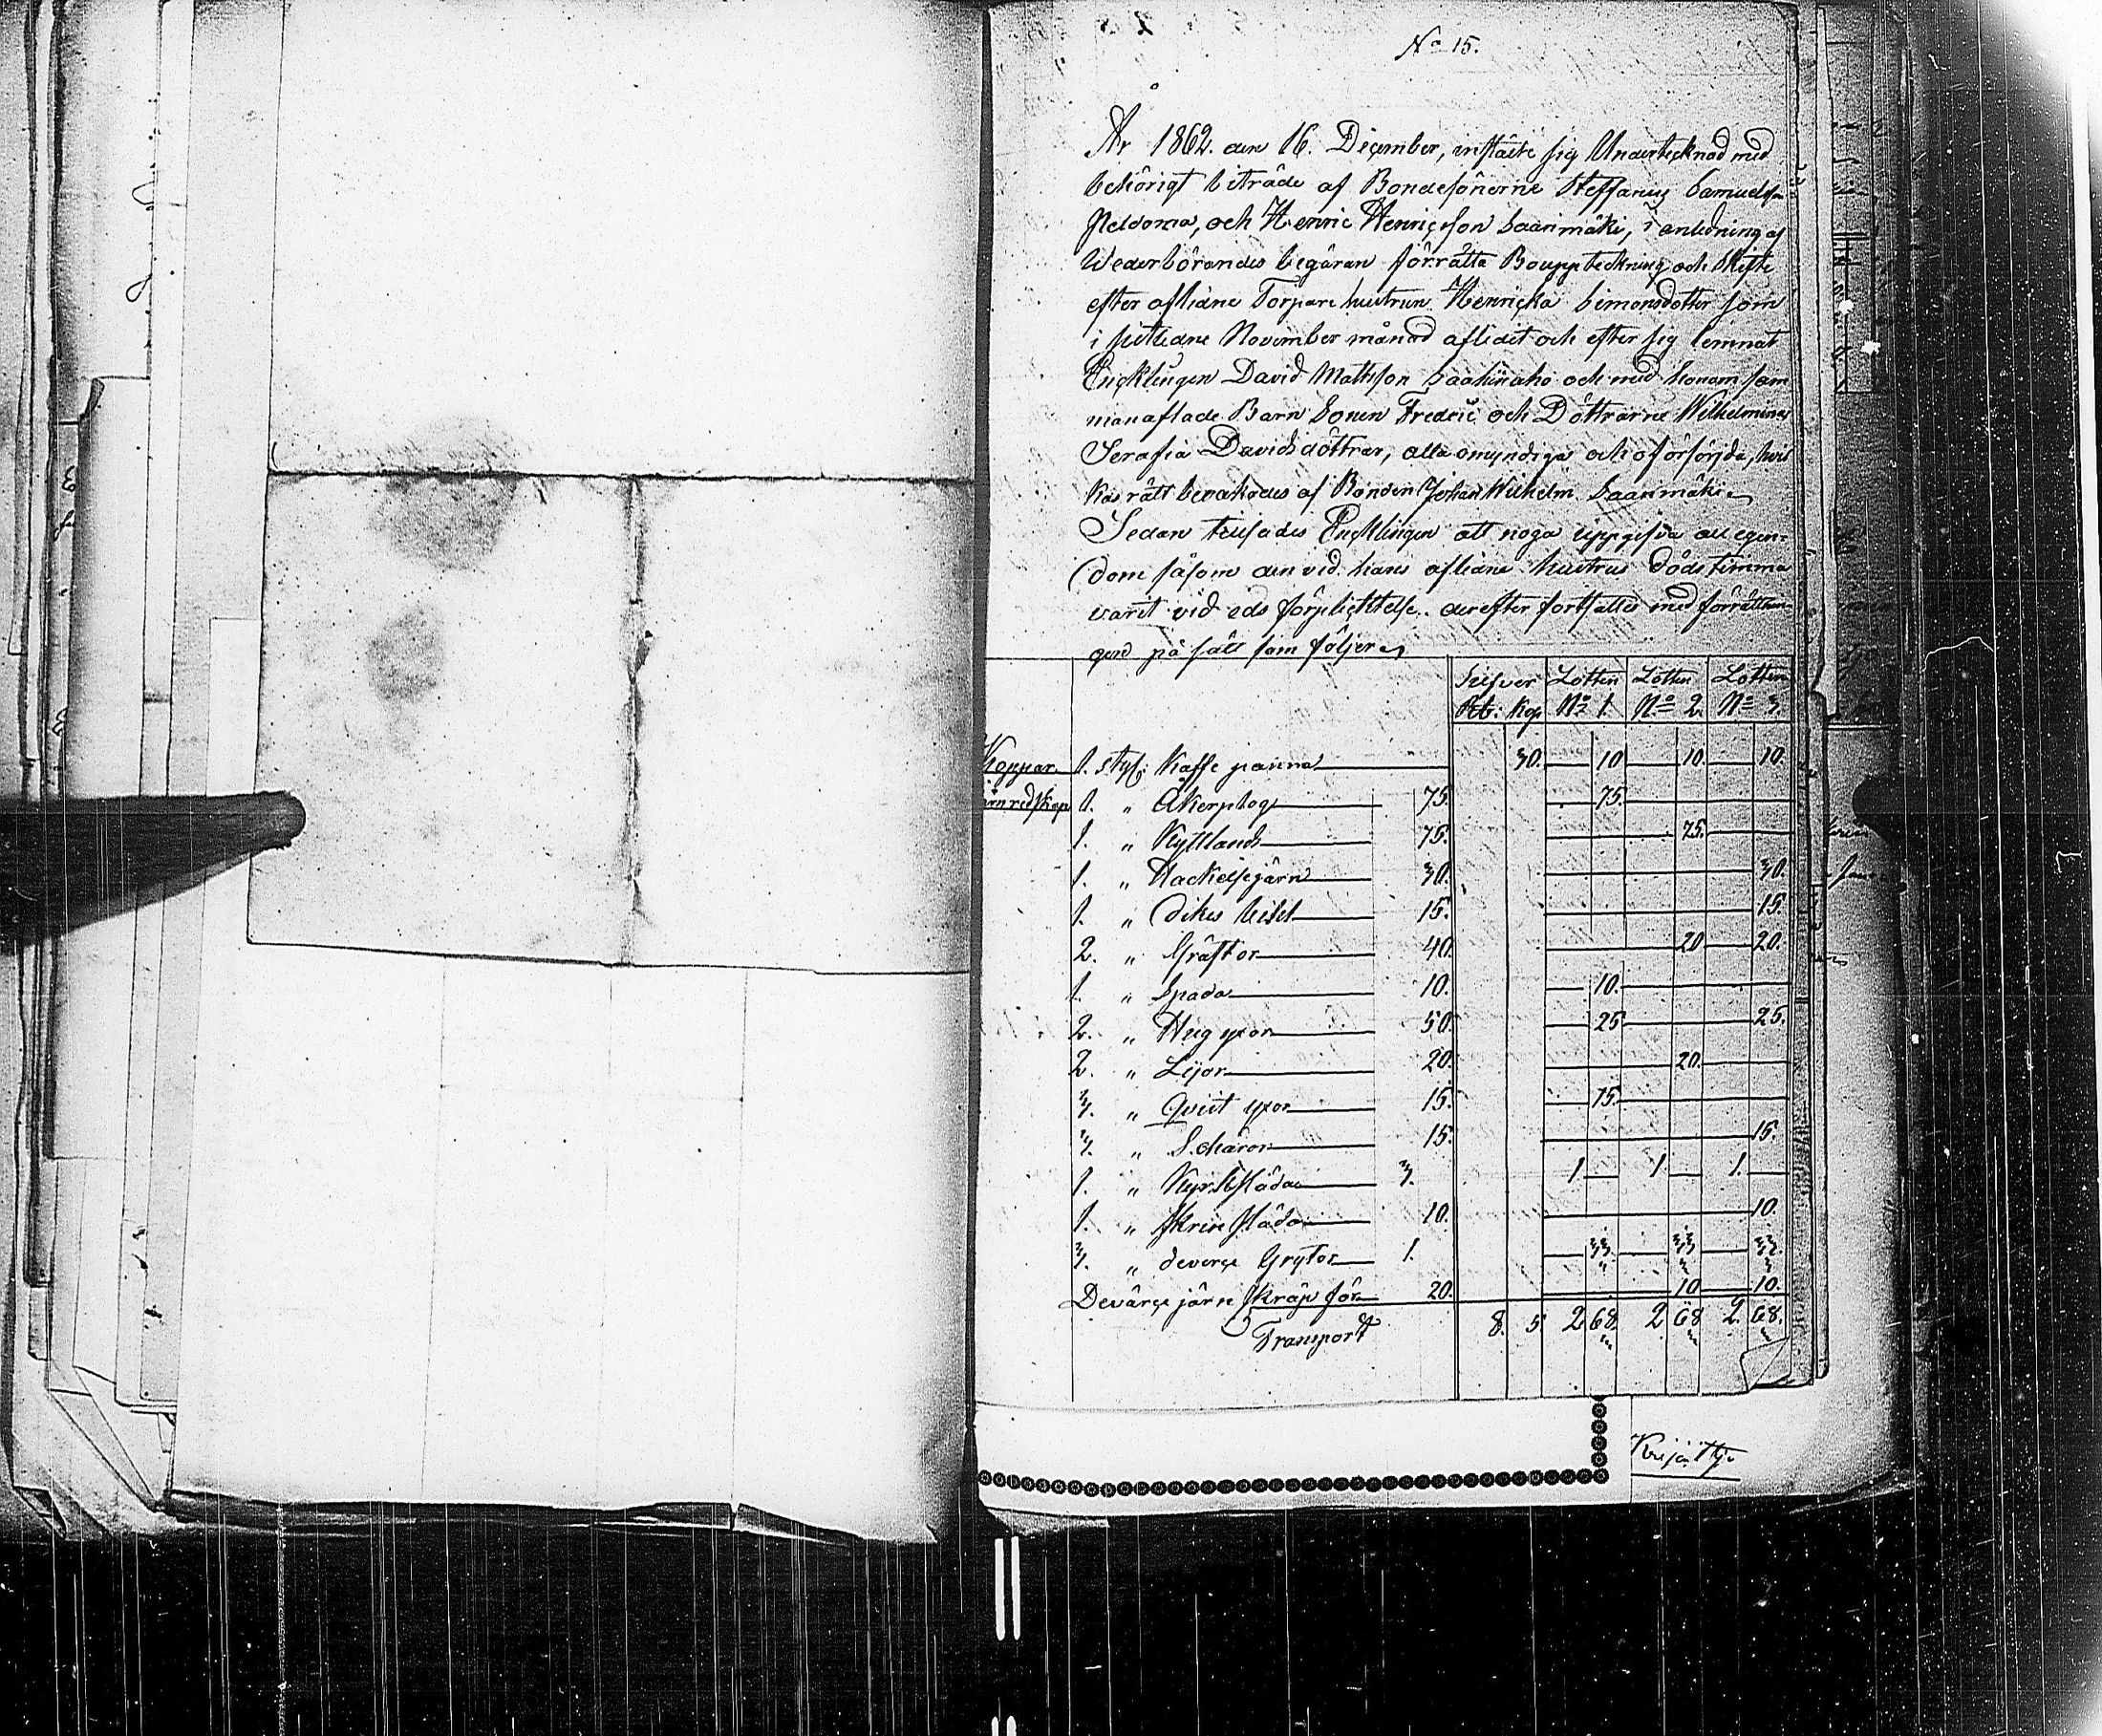 No 15.
År 1862. den 16. December, instälte sig Undertecknad med
behörigt biträde af Bondesönerne Steffanus Samuelsson
Peldoma, och Henric Henricsson Saarimäki, i anledning af
Wederbörandes begäran förrätta Bouppteckning och Skifte
efter aflidne Torpare hustrun Henricka Simonsdotter som
i sistledne November månad aflidit och efter sig lemnat
Encklingen David Mattsson och med honom sam
manaflade Barn Sonen Fredric och Döttrarne Wilhelmina
Serafia Davids döttrar, alla omyndiga och oförsörjda, hvil
kas rätt bevakades af Bonden Johan Wilhelm Saarimäki
Sedan tillsades Encklingen att noga uppgifva all egen-
dom såsom den vid hans aflidne hustrus dödstimma
varit vid eds förplicttelse. derefter fortsattes med förrättnin
gen på sätt som följer
Silfver Lotten Lotten Lotten
Rub: Kop. No 1. No 2. No 3.
Koppar 1. styk: Kaffe panna 30. 10 10. 10.
Järnredskap 1. " Åkerplog 75. 75.
1. " Kyttlands 75. 75.
1. " Hackelsejärn 30. 30.
1. " Dikes bill 15. 15.
2. " Gräftor 40. 20 20.
1. " Spada 10. 10.
2. " Hug yxor 50. 25 25.
2. " Lijor 20. 20.
3. " Qvist yxor 15. 15.
3. " Schäror 15. 15.
1. " Kyrkslädae 3. 1 1 1.
1. " skrin släda 10. 10.
3. " deverse Grytor 1. 33 33 33.
Devärse järn skräp för 20. 10 10.
Transport 8. 5 2 68. 2 68 2. 68.